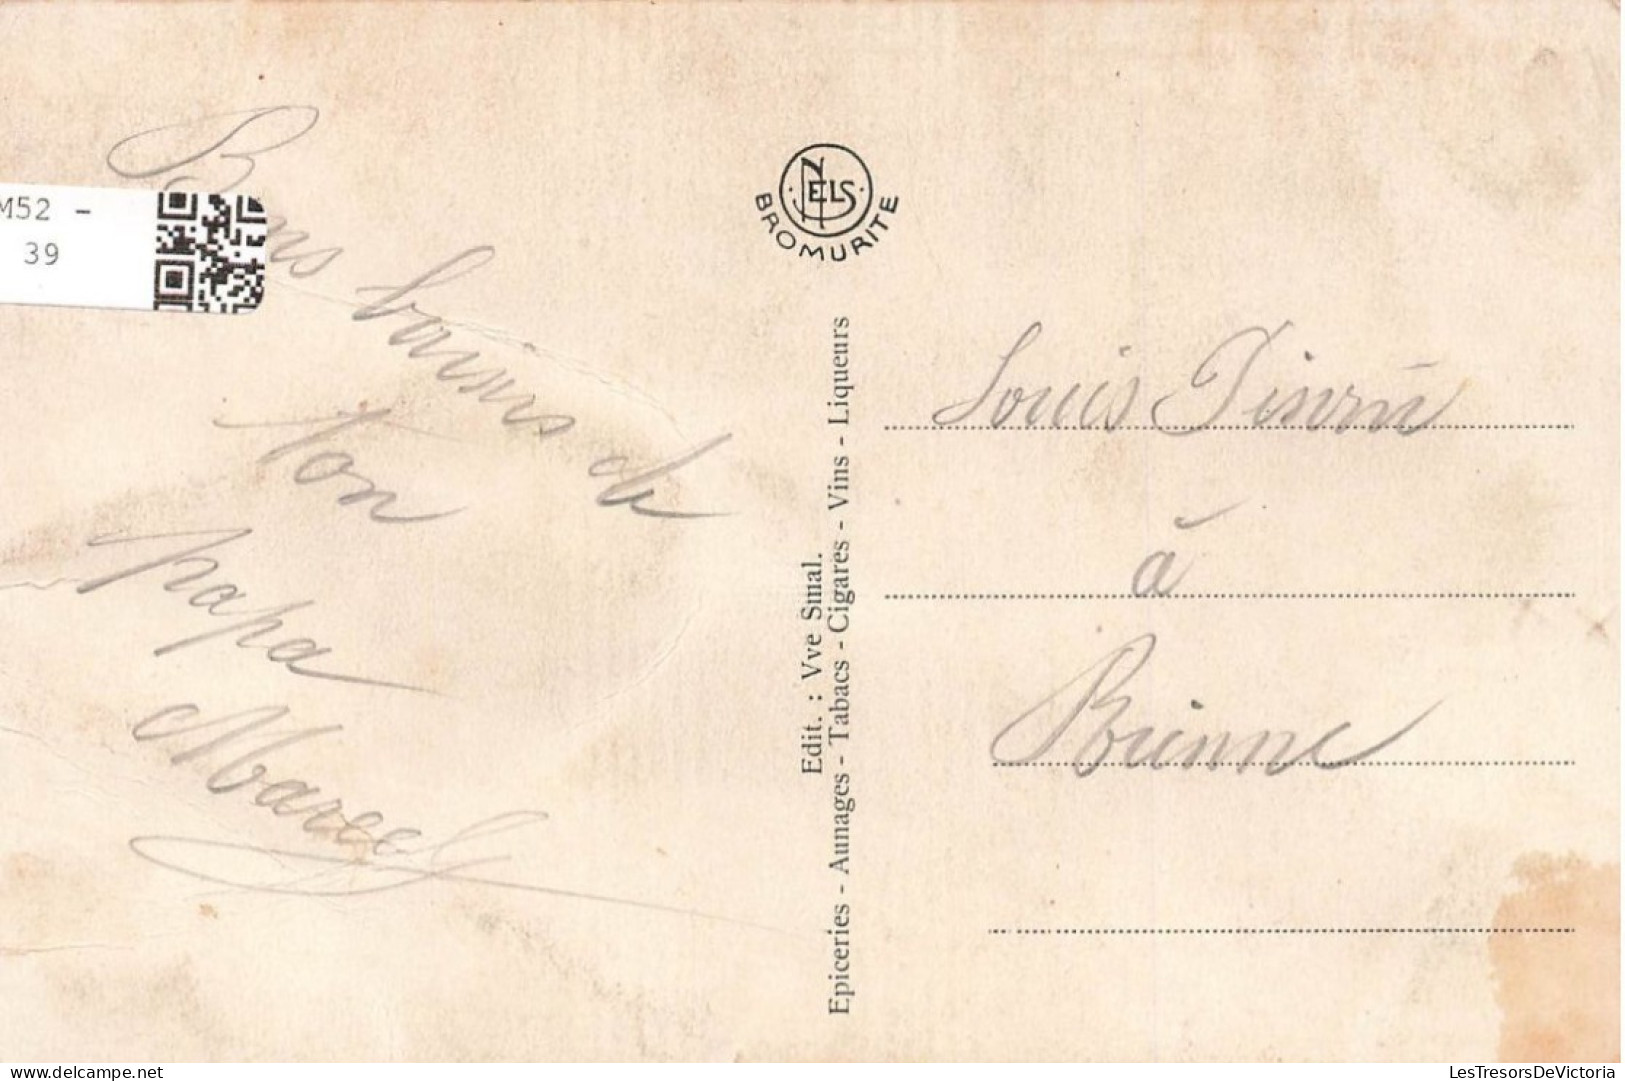 Bons baisers de
ton
papa
Marcel
M52 -
39
NELS
BROMURITE
Edit. : Vve Smal.
Epiceries - Aunages - Tabacs - Cigares - Vins - Liqueurs
Louis
à
Brienne
www.delcampe.net
LesTresorsDeVictoria